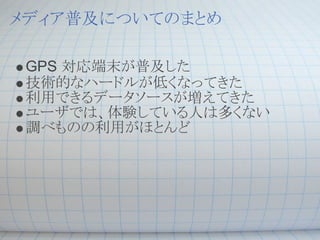 メディア普及についてのまとめ
●GPS 対応端末が普及した
●技術的なハードルが低くなってきた
●利用できるデータソースが増えてきた
●ユーザでは、体験している人は多くない
●調べものの利用がほとんど